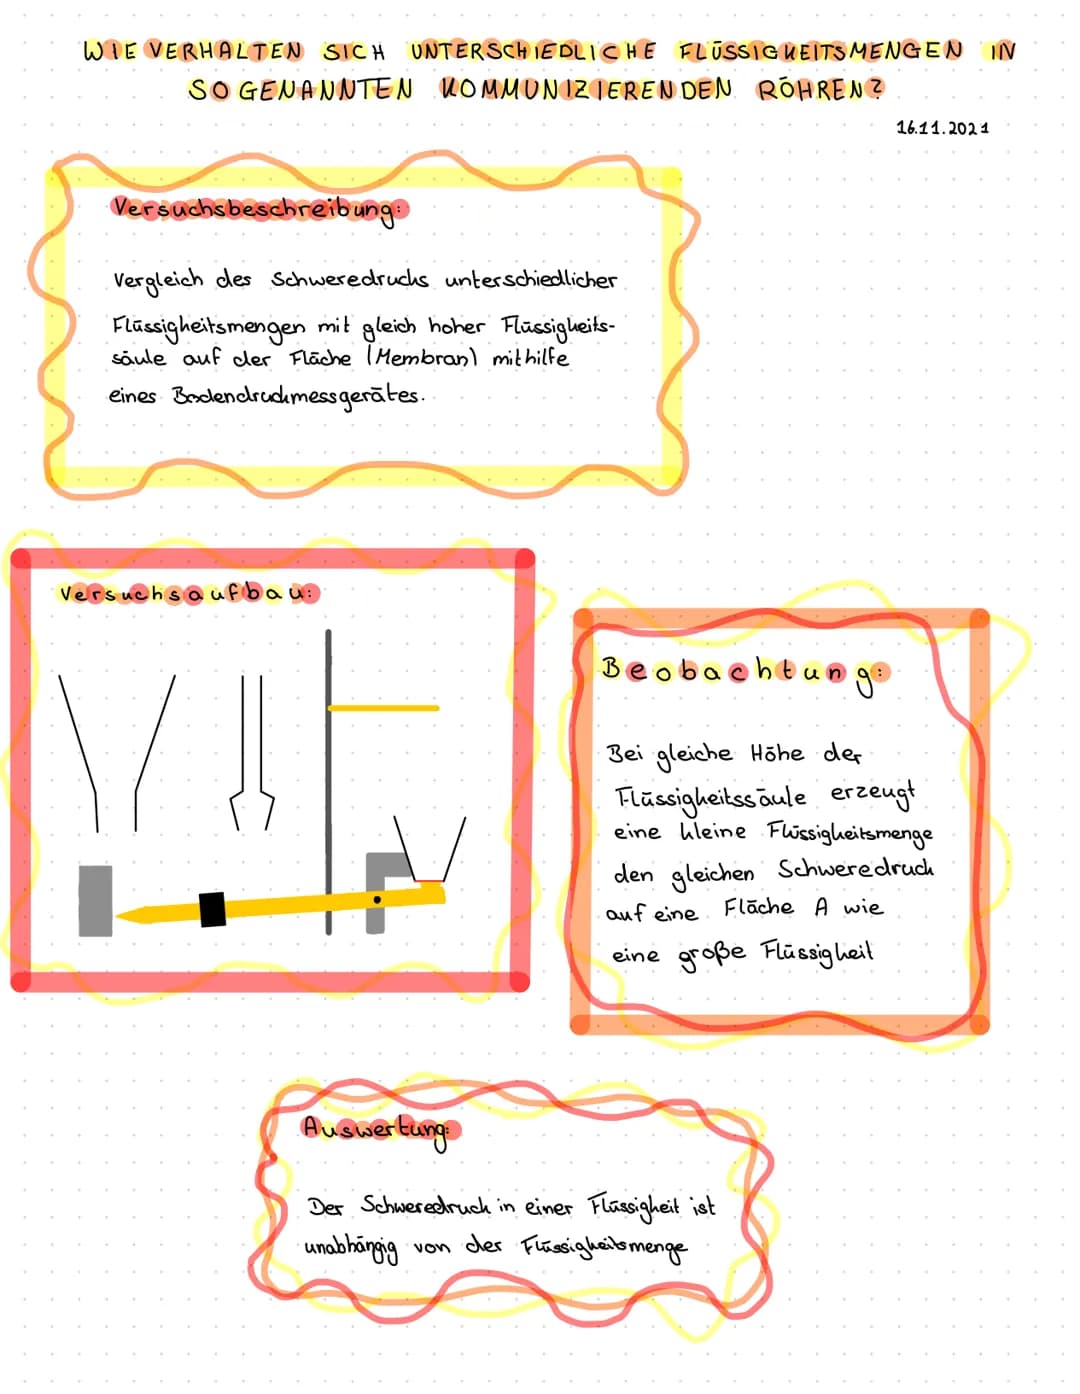 WIE VERHALTEN SICH UNTERSCHIEDLICHE FLÜSSIGKEITSMENGEN IN
SOGENANNTEN KOMMUNIZIERENDEN RÖHREN?
16.11.2021
Versuchsbeschreibung:
Vergleich des Schweredrucks unterschiedlicher
Flüssigkeitsmengen mit gleich hoher Flüssigkeits-
säule auf der Fläche (Membran) mithilfe
eines Bodendruckmessgerätes.
Versuchsaufbau:
Beobachtung:
Bei gleiche Höhe der
Flüssigkeitssäule erzeugt
eine kleine Flüssigkeitsmenge
den gleichen Schweredruck
auf eine Fläche A wie
eine große Flüssigkeit
Auswertung:
Der Schweredruck in einer Flüssigkeit ist
unabhängig von der Flüssigkeitsmenge